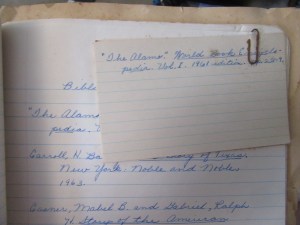 "The Alamo." World Book Encyclo-
pedia. Vol. 1. 1961 edition.
Bibl
"The Alamo
pedia.
Carroll, H. Ba of Texas
New York: Noble and Noble,
1963.
Casner, Mabel B. and Gabriel, Ralph
H. Story of the American